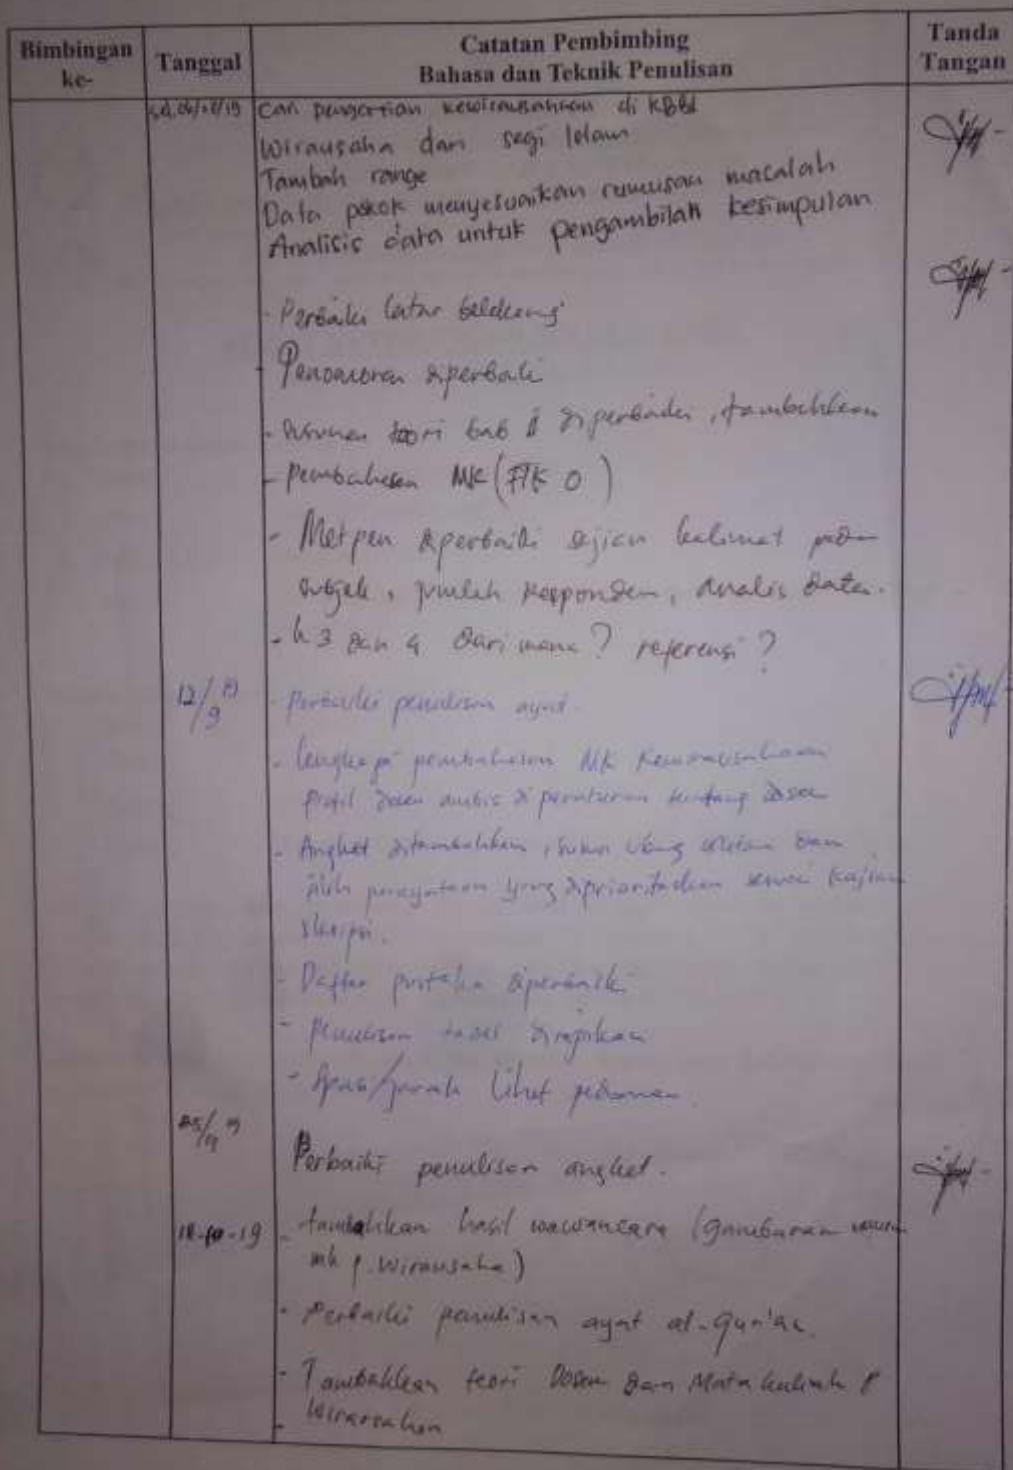 Bimbingan ke-
Tanggal
Catatan Pembimbing
Bahasa dan Teknik Penulisan
Tanda Tangan
Cari pengertian kewirausahaan di KBBI
Wirausaha dari segi Islam
Tambah range
Data pokok menyesuaikan rumusan macalah
Analisis data untuk pengambilan kesimpulan
- Perbaiki latar belakang
- Penomoran diperbaiki
- Susunan teori bab II diperbaiki, tambahkan
- pembahasan MK
- Metpen diperbaiki sajian kalimat pada
subjek, jumlah responden, analis data.
- h 3 dan 4 dari mana? referensi?
12/9 19
- Perbaiki penulisan ayat.
- Lengkapi pembahasan MK Kewirausahaan
Profil dosen ambis di peraturan tentang dosen
- Angket ditambahkan, susun ulang dan
pilih pernyataan yang diprioritaskan sesuai kajian
skripsi.
- Daftar pustaka diperbaiki
- Penulisan tabel dirapikan
- Spasi/jarak lihat pedoman
25/9 19
Perbaiki penulisan angket.
18-10-19
- tambahkan hasil wawancara (gambaran umum
mk p. wirausaha)
- Perbaiki penulisan ayat al-Qur'an.
- Tambahkan teori Dosen dan Mata kuliah P
Wirausaha